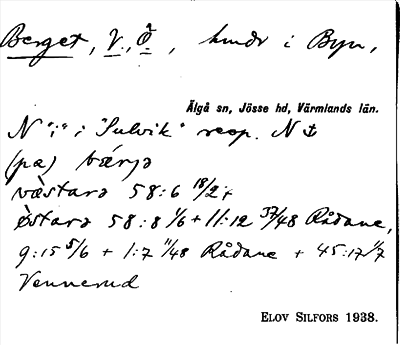 Berget, V., Ö., hmdr i Byn,
Älgå sn, Jösse hd, Värmlands län.
N "i" i "Sulvik" resp. N
(pa) bärjə
västarə 58:6 18/24
östarə 58:8 1/6 + 11:12 37/48 Rådane,
9:15 5/6 + 1:7 11/48 Rådane + 45:17 1/7
Vennerud
ELOV SILFORS 1938.